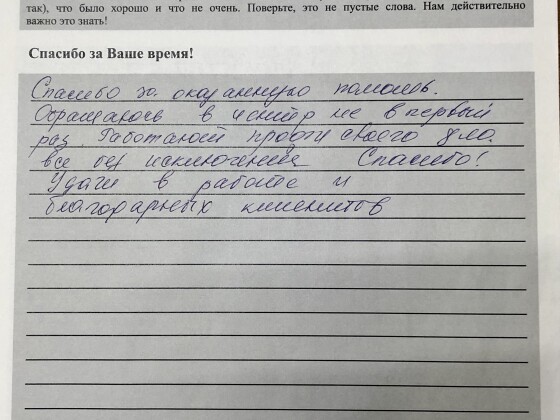 так), что было хорошо и что не очень. Поверьте, это не пустые слова. Нам действительно
важно это знать!
Спасибо за Ваше время!
Спасибо за оказанную помощь.
Обращаюсь в центр не в первый
раз. Работают профи своего дела.
все без исключения Спасибо!
Удачи в работе и
благодарных клиентов